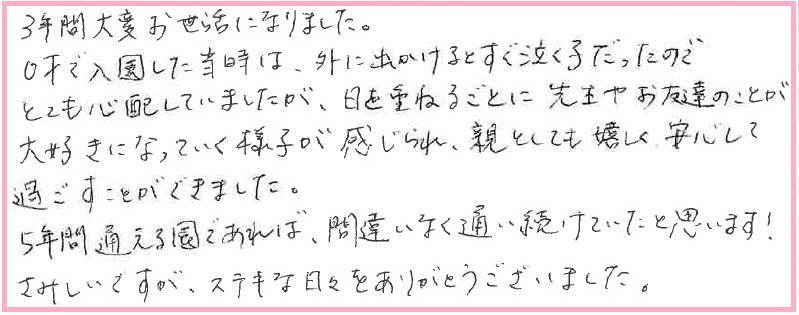 3年間大変お世話になりました。
0才で入園した当時は、外に出かけるとすぐ泣く子だったので
とても心配していましたが、日を重ねるごとに先生やお友達のことが
大好きになっていく様子が感じられ、親としても嬉しく安心して
過ごすことができました。
5年間通える園であれば、間違いなく通い続けていたと思います!
さみしいですが、ステキな日々をありがとうございました。